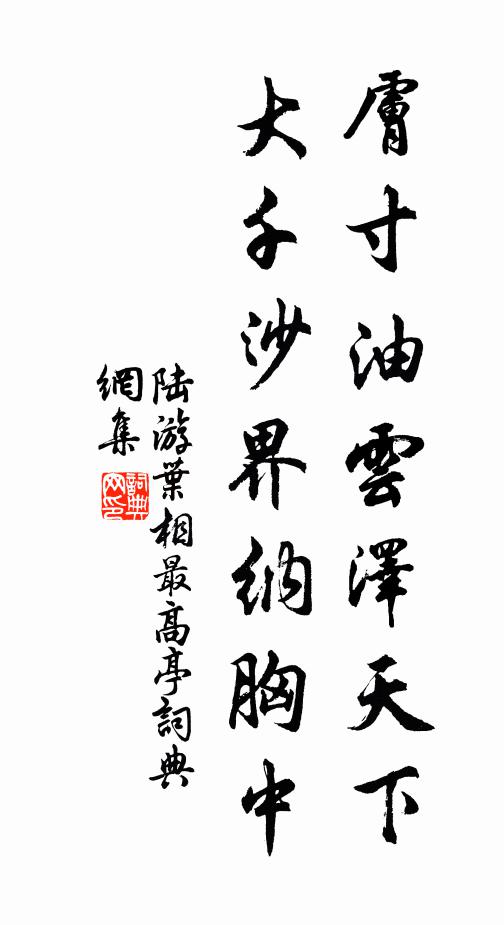 膚寸油雲澤天下
大千沙界納胸中
陸游葉相最高亭詞典
網集
詞典
网印